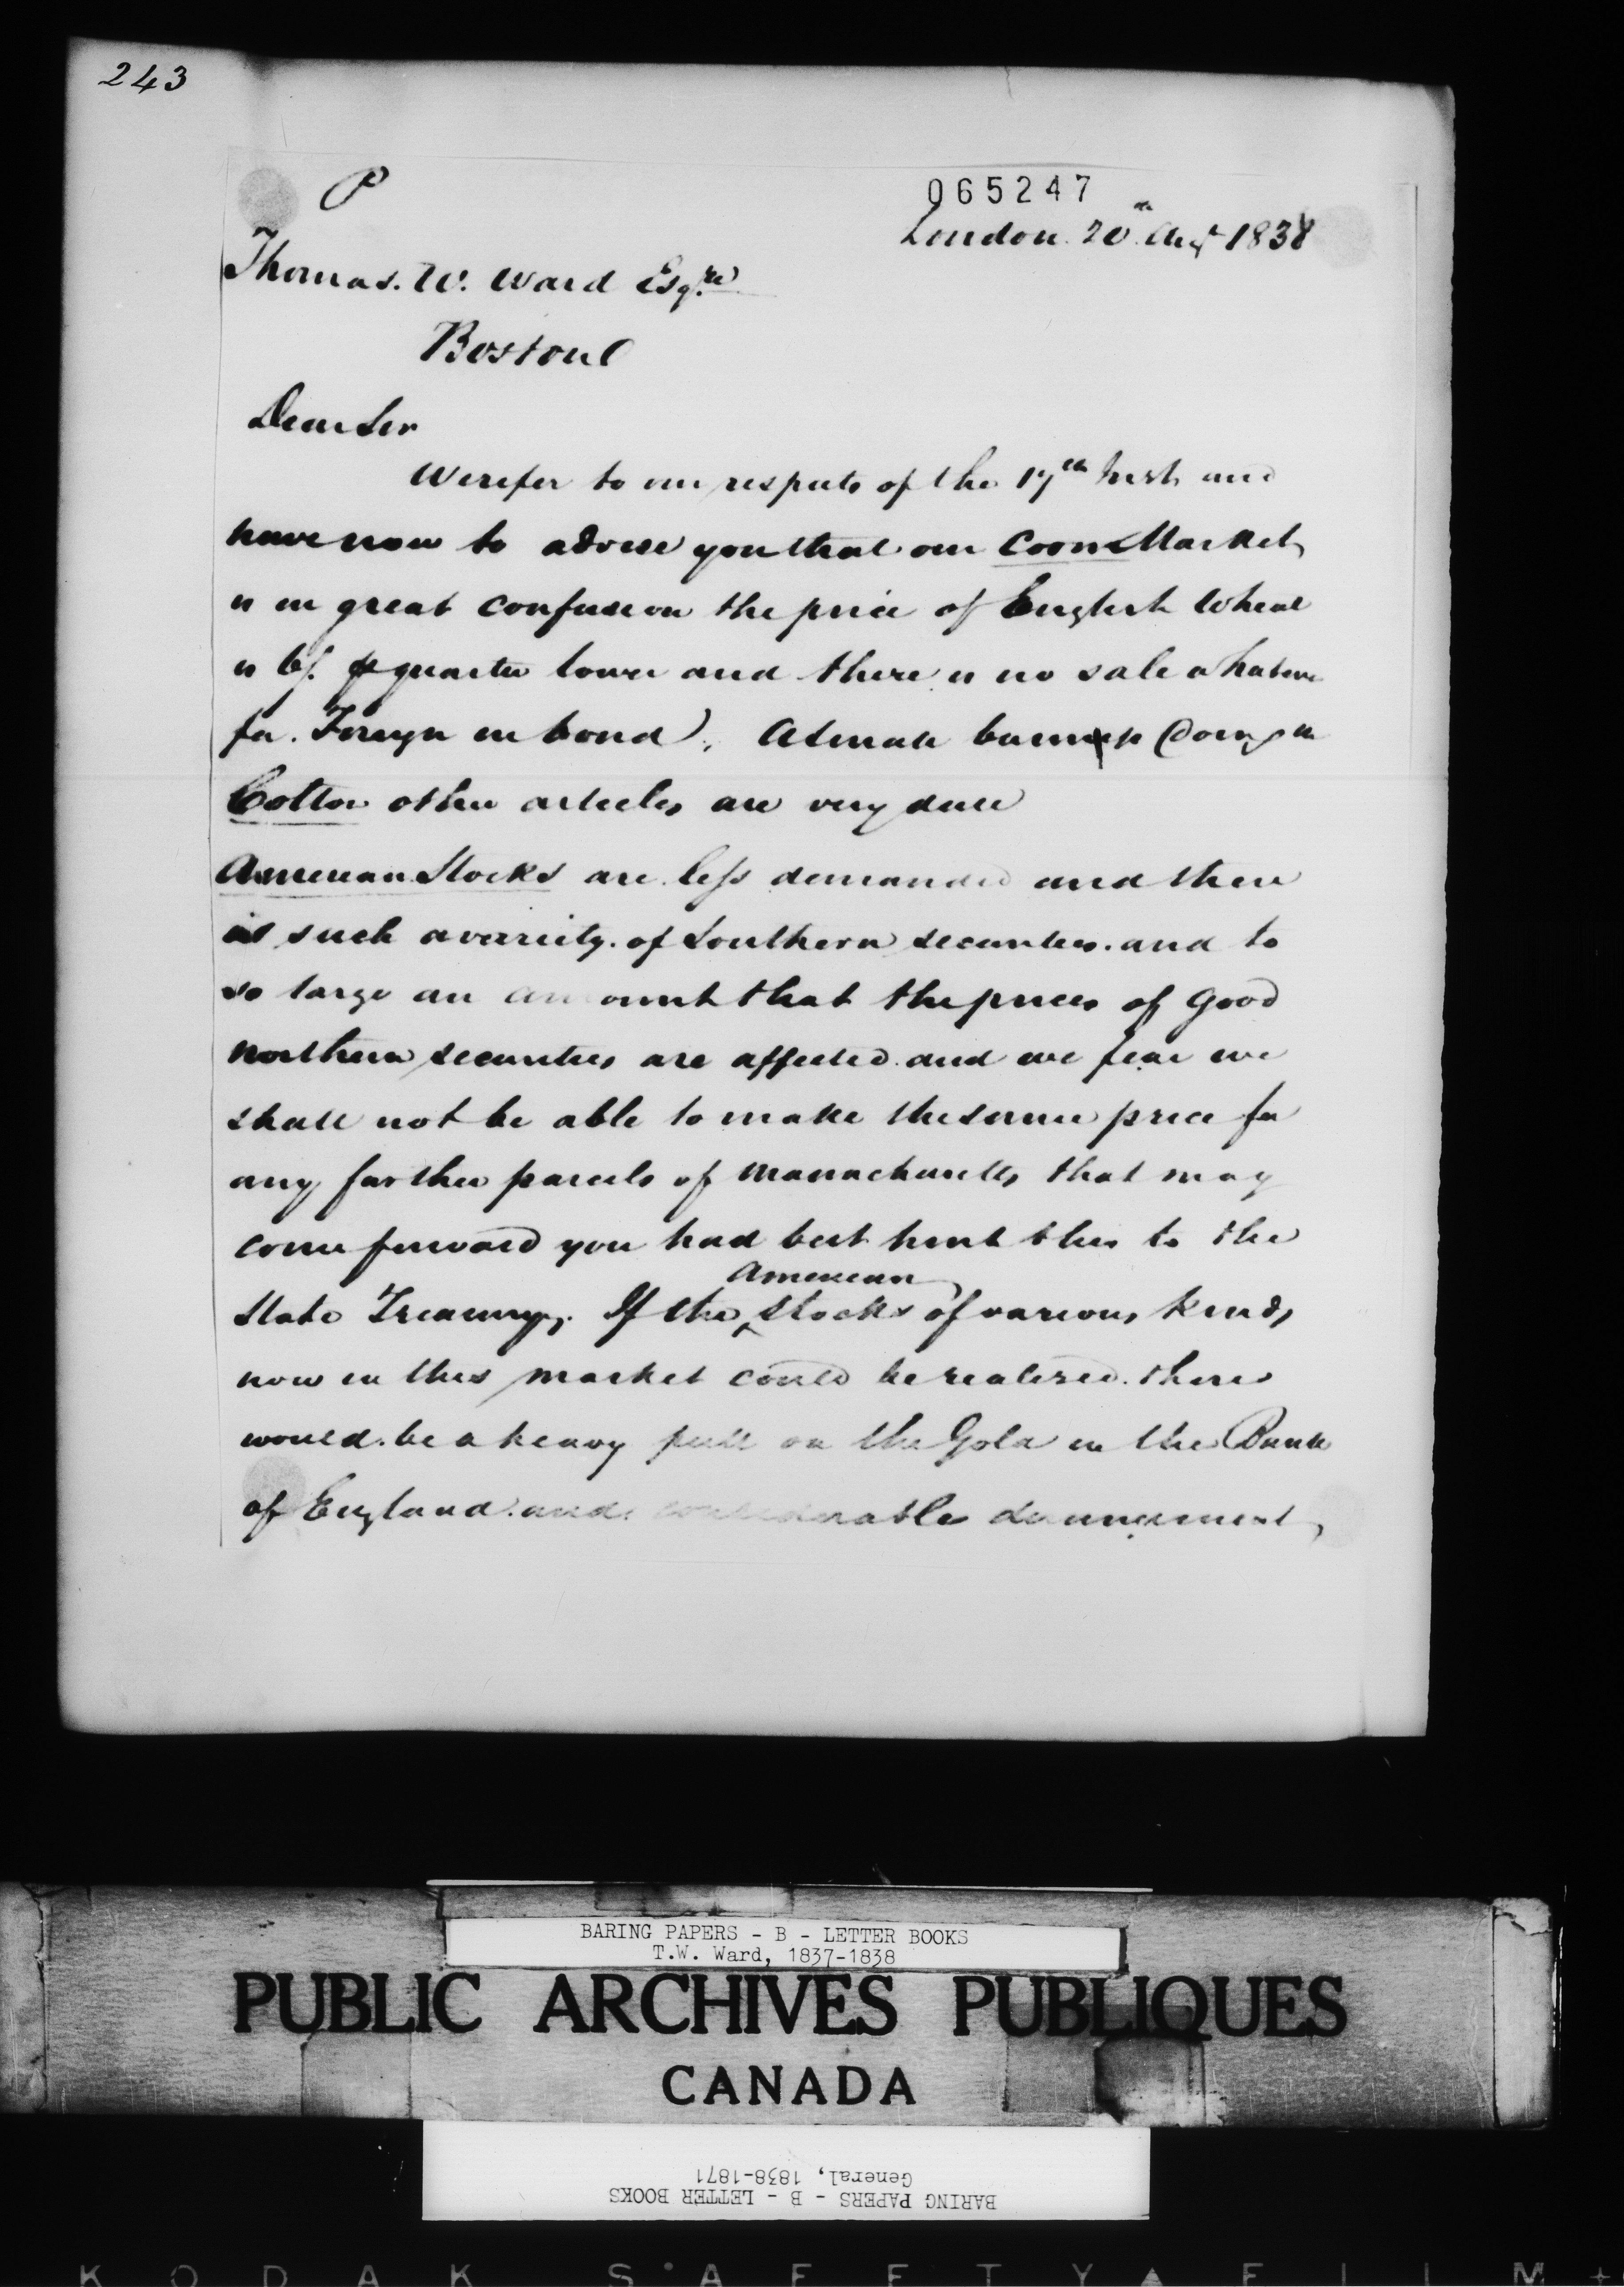 243
P
065247
London. 20th Augt 1838
Thomas. W. Ward Esqre
Boston
Dear Sir
We refer to our respects of the 17th Inst. and
have now to advise you that our Corn Market,
is in great confusion the price of English Wheat
is 6/. p quarter lower and there is no sale whatever
for Foreign in bond. A small business doing in
Cotton other articles are very dull
American Stocks are less demanded and there
is such a variety of Southern securities. and to
so large an amount that the prices of good
Northern securities are affected. and we fear we
shall not be able to make the same price for
any farther parcels of Massachusetts, that may
come forward you had best hint this to the
American
State Treasury. If the stocks of various kinds
now in this market could be realized. there
would. be a heavy pull on the Gold in the Bank
of England. and considerable
BARING PAPERS - B - LETTER BOOKS
T.W. Ward, 1837-1838
PUBLIC ARCHIVES PUBLIQUES
CANADA
BARING PAPERS - B - LETTER BOOKS
General, 1838-1871
KODAK SAFETY FILM